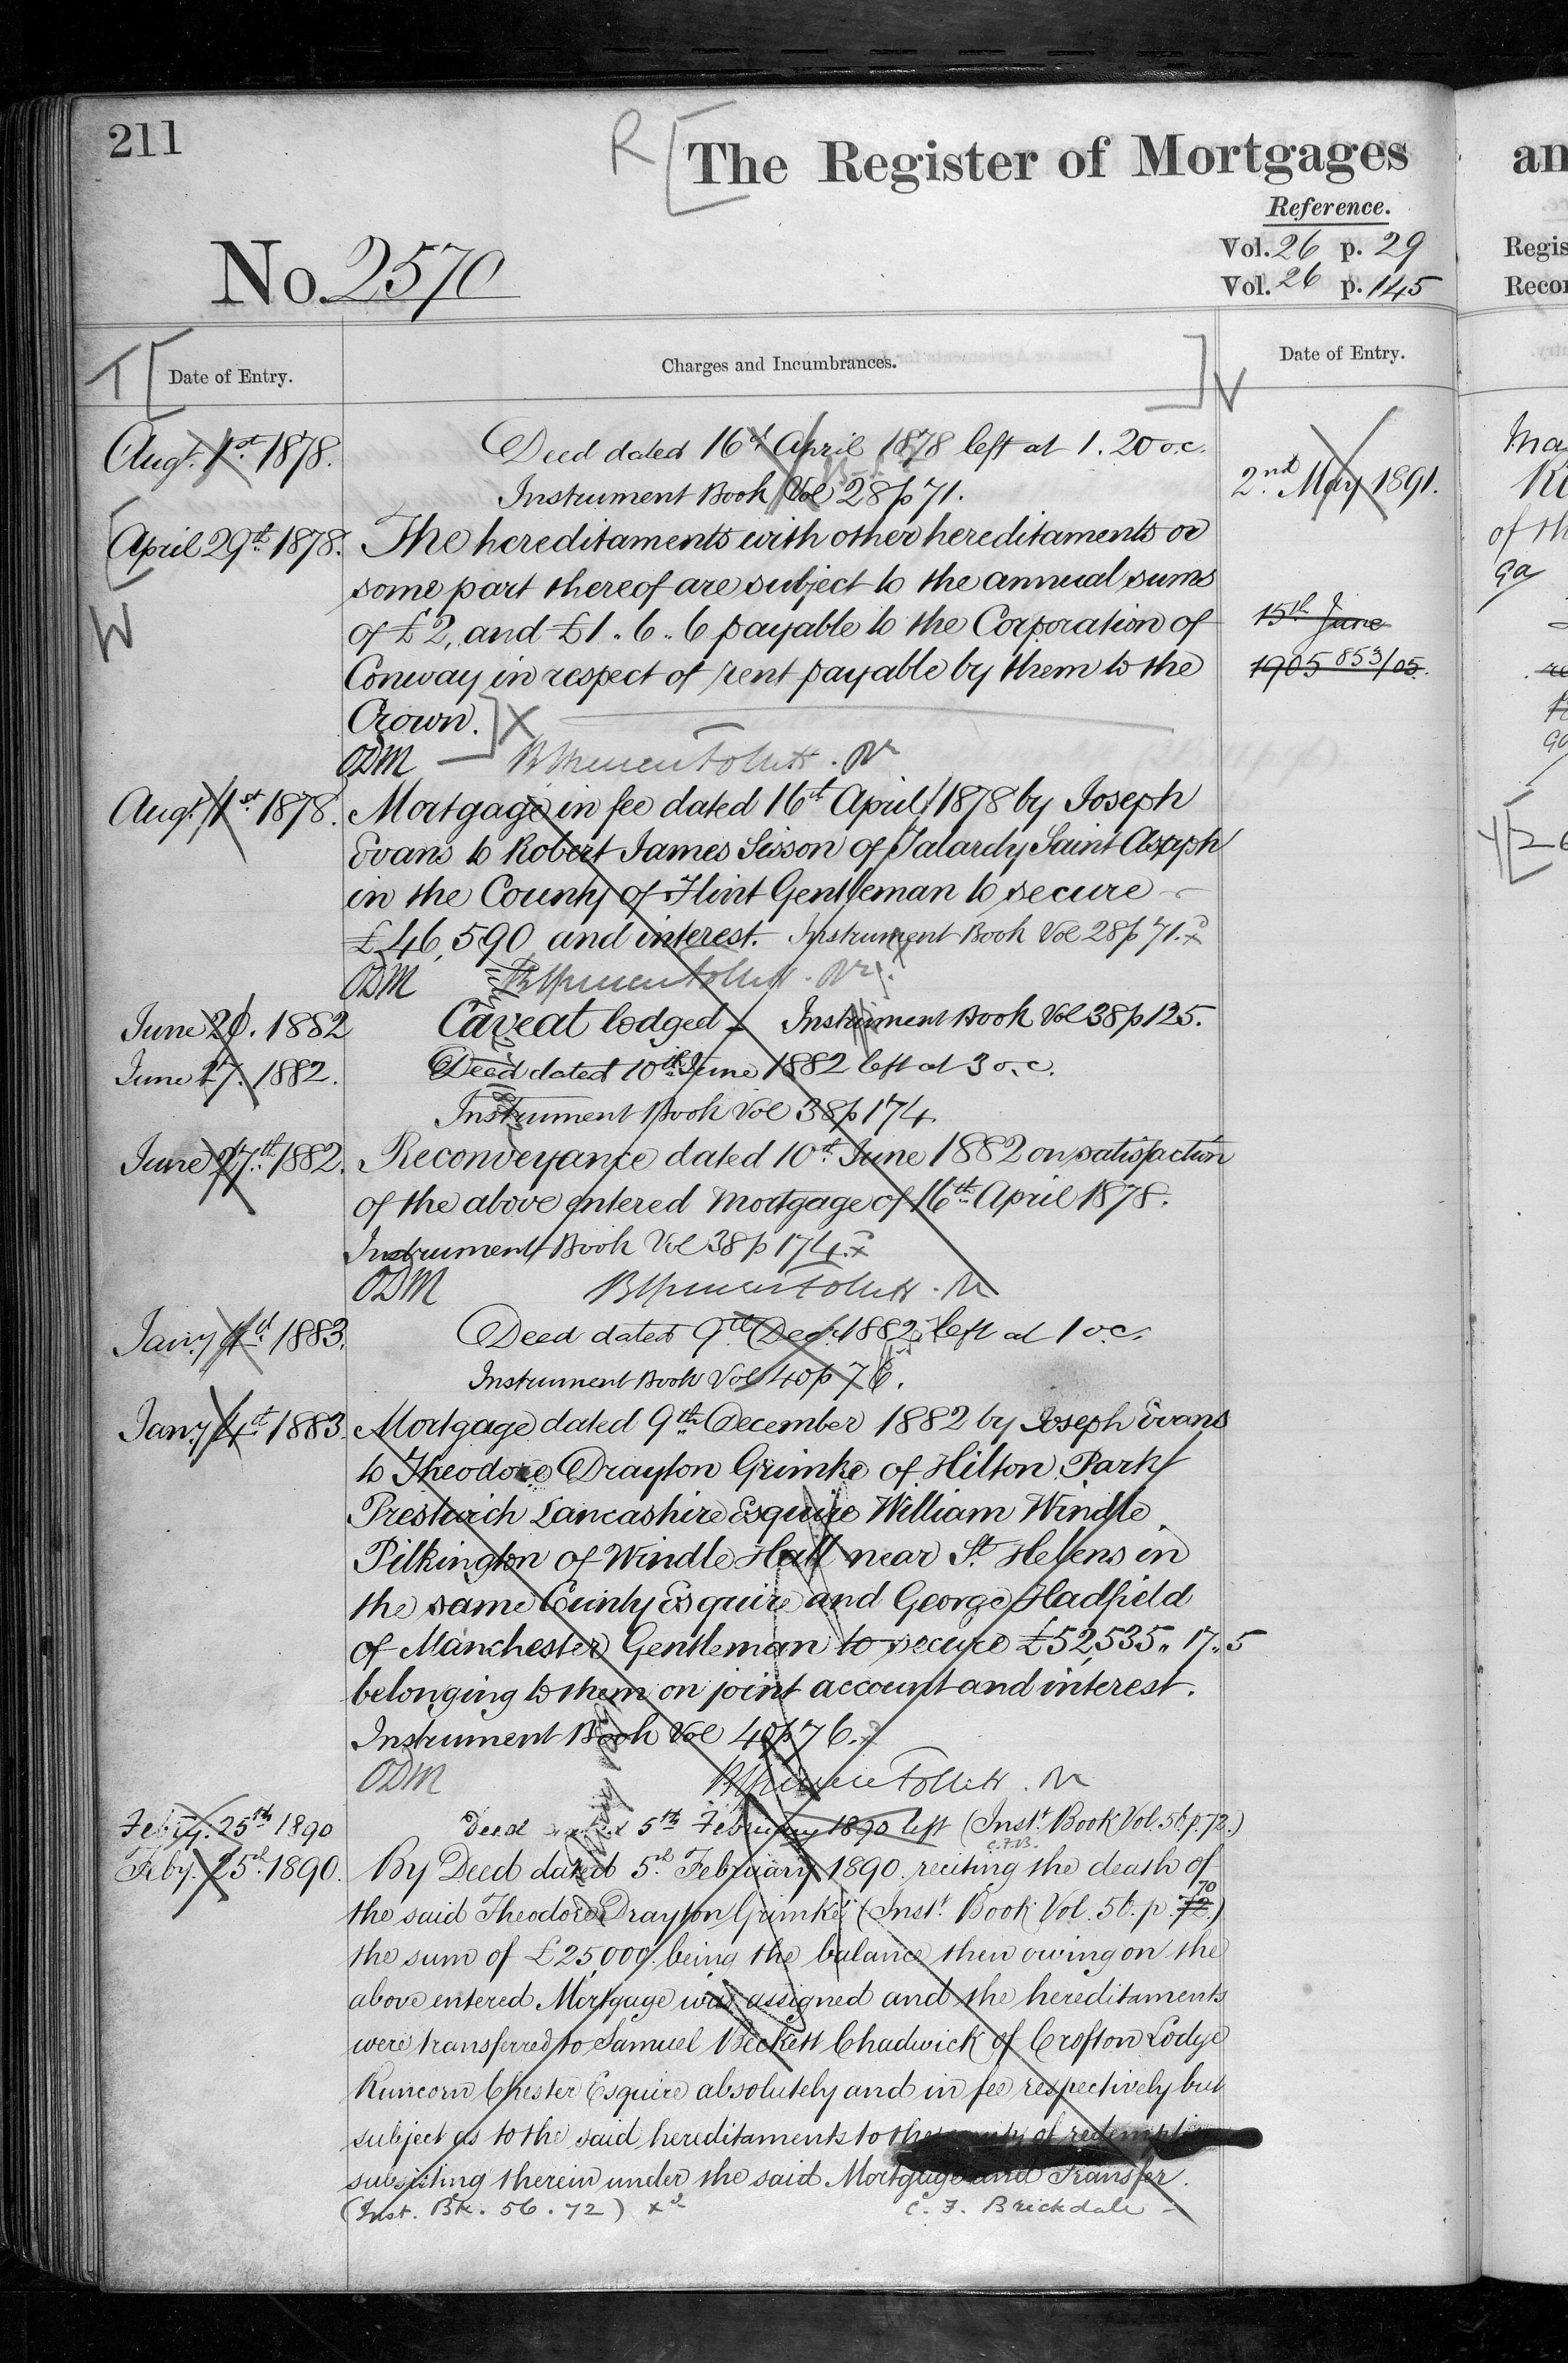 211
R [ The Register of Mortgages
Reference.
Vol. 26 p. 29
Vol. 26 p. 145
No. 2570
T [ Date of Entry.
Charges and Incumbrances. ] V
Date of Entry.
Augt. 1st 1878.
Deed dated 16th April 1878 left at 1.20 o.c.
Instrument Book Vol 28 p 71.
April 29th 1878.
W
The hereditaments with other hereditaments or
some part thereof are subject to the annual sums
of £2, and £1.. 6.. 6 payable to the Corporation of
Conway in respect of rent payable by them to the
Crown. ] X
ODM
Augt. 1st 1878.
Mortgage in fee dated 16th April 1878 by Joseph
Evans to Robert James Sisson of Talardy Saint Asaph
in the County of Flint Gentleman to secure
£46,590 and interest. Instrument Book Vol 28 p 71.
ODM
June 20. 1882
Caveat lodged Instrument Book Vol 38 p 125.
June 27. 1882.
Deed dated 10th June 1882 left at 3 o.c.
Instrument Book Vol 38 p 174.
June 27th 1882.
Reconveyance dated 10th June 1882 on satisfaction
of the above entered Mortgage of 16th April 1878.
Instrument Book Vol 38 p 174.
ODM
Jany 4th 1883.
Deed dated 9th Decr. 1882 left at 1 o.c.
Instrument Book Vol 40 p 76.
Jany 4th 1883.
Mortgage dated 9th December 1882 by Joseph Evans
to Theodore Drayton Grimke of Hilton Park
Prestwich Lancashire Esquire William Windle
Pilkington of Windle Hall near St. Helens in
the same County Esquire and George Hadfield
of Manchester Gentleman to secure £52,535.. 17.. 5
belonging to them on joint account and interest.
Instrument Book Vol 40 p 76.
ODM
Feby. 25th 1890
Deed dated 5th February 1890 left (Inst. Book Vol. 56 p. 72.)
C.F.B.
Feby. 25th 1890.
By Deed dated 5th February 1890 reciting the death of
the said Theodore Drayton Grimke (Inst. Book Vol. 56. p. 72 70)
the sum of £25,000 being the balance then owing on the
above entered Mortgage was assigned and the hereditaments
were transferred to Samuel Beckett Chadwick of Crofton Lodge
Runcorn Chester Esquire absolutely and in fee respectively but
subject as to the said hereditaments to the equity of redemption
subsisting therein under the said Mortgage and Transfer.
(Inst. Bk. 56. 72) C. F. Brickdale
2nd May 1891.
15th June
1905 853/05.
an
Regis
Recor
Ma
of th